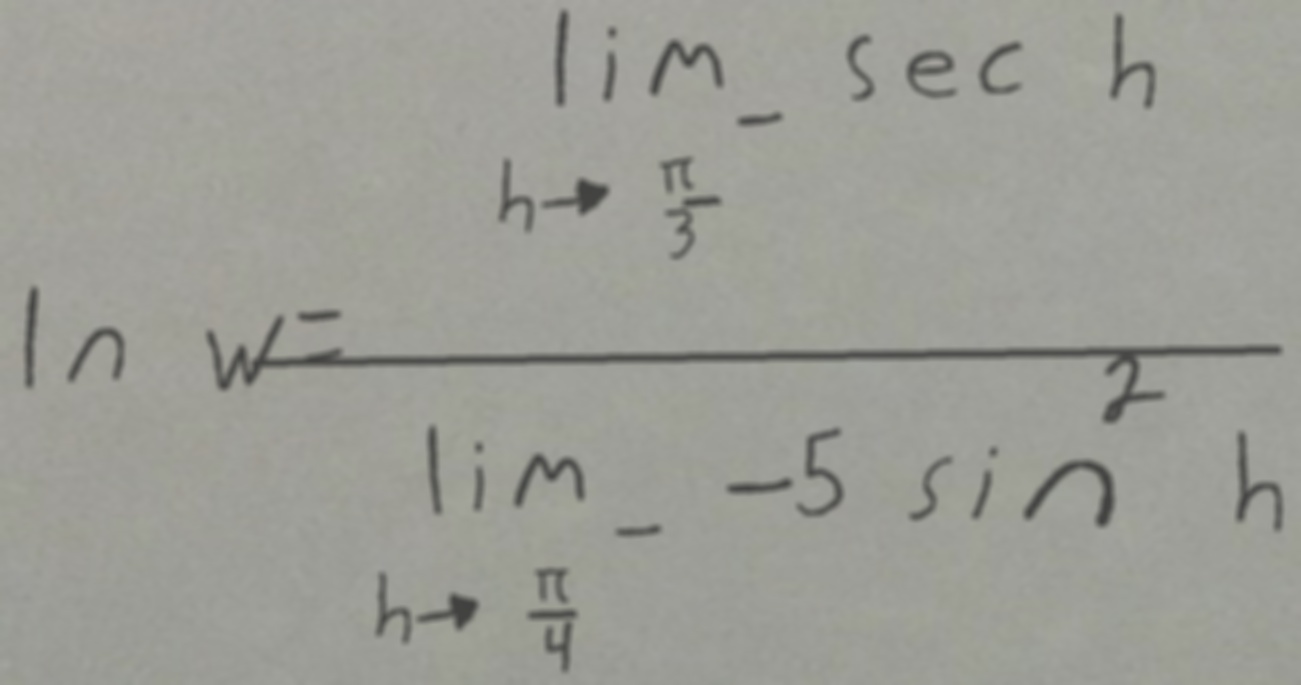 ln w = \frac{\lim_{h \to \frac{\pi}{3}^-} \sec h}{\lim_{h \to \frac{\pi}{4}^-} -5 \sin^2 h}